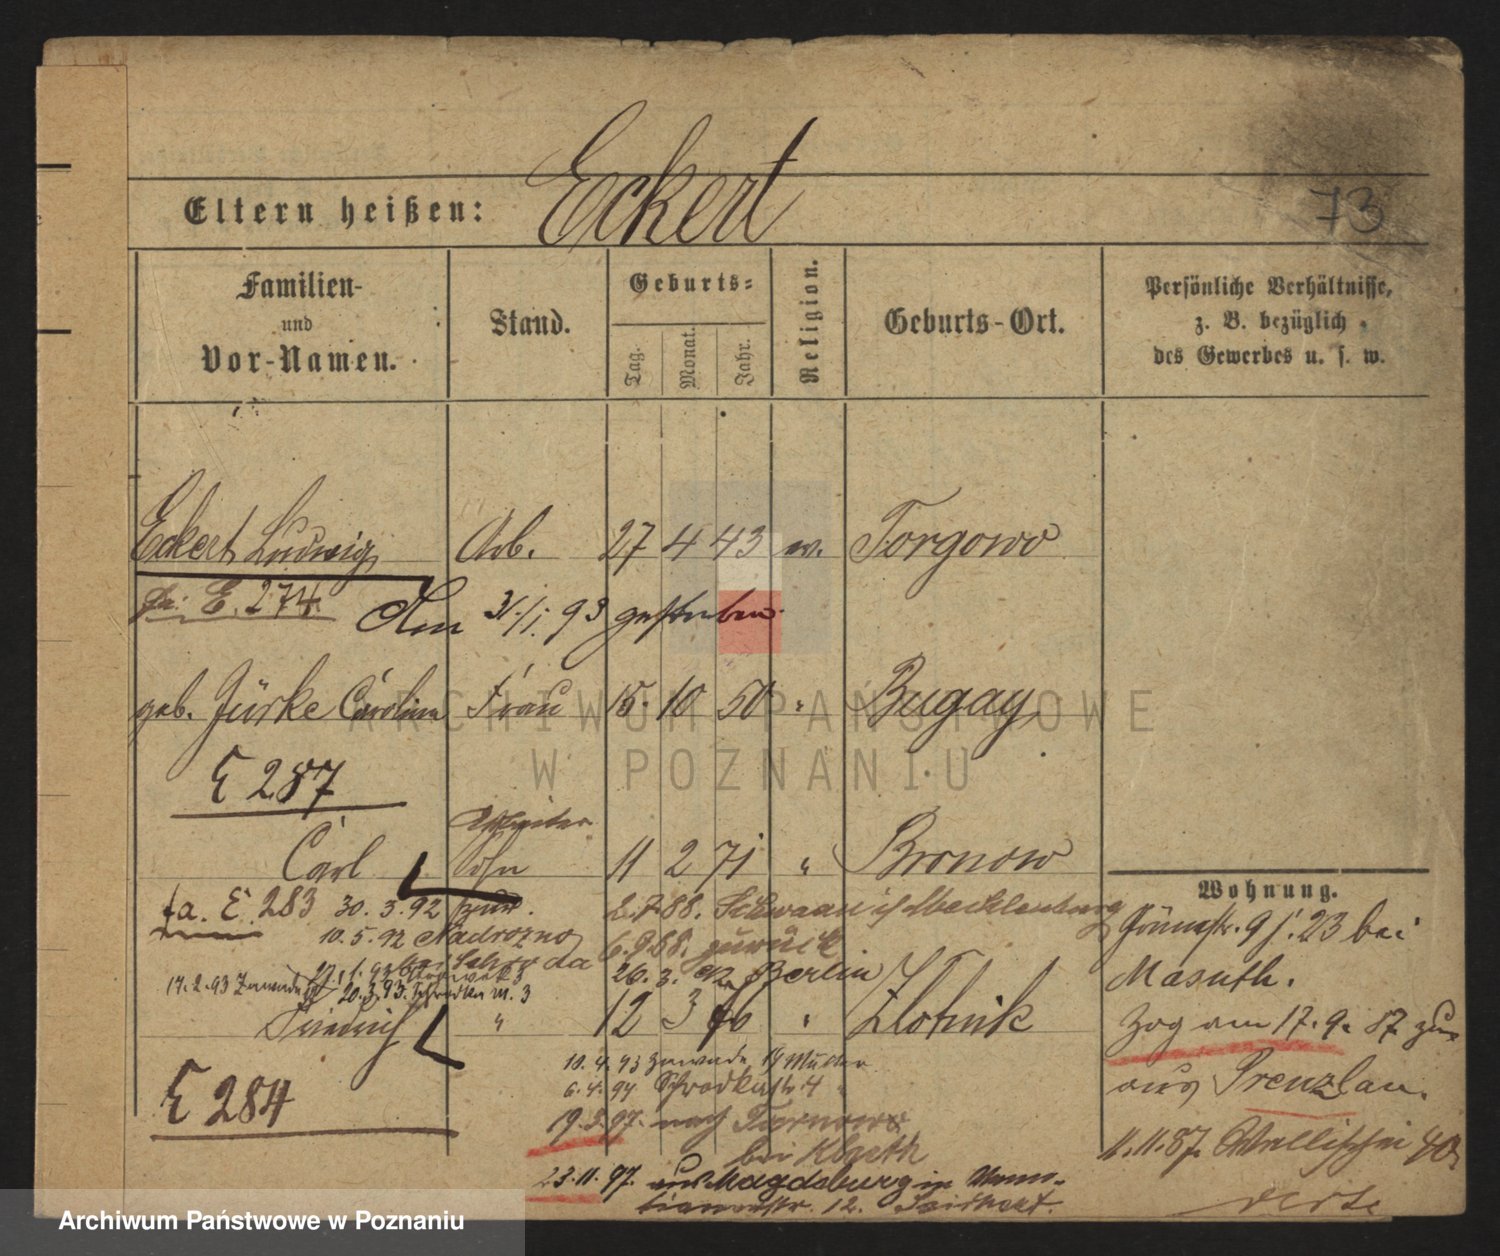 Eckert
Eltern heißen:
73
Familien-
und
Vor-Namen.
Stand.
Geburts-
Tag.
Monat.
Jahr.
Religion.
Geburts-Ort.
Persönliche Verhältnisse,
z. B. bezüglich
des Gewerbes u. s. w.
Eckert Ludwig Arb. 27 4 43 ev. Torgowo
E. 274. Am 31./1. 93 gestorben
geb. Jürke Caroline Frau 15. 10 50 " Bugay
E 287
Arbeiter
Carl Sohn 11 2 71 " Bronow
fa. E. 283 30. 3. 92 zur.
2.7.88. Schwaan i/ Mecklenburg
10. 5. 92 Nadrozno
6.9.88. zurück
bei Schroda
26. 3. 92 Berlin
14.2.93 Zawade
20.3.93. Schrodka M. 3
Friedrich " 12 3 76 " Zlotnik
E 284
10. 4. 93 Zawade 14 Müller
6. 4. 94 Schrodkastr. 4
19. 8. 97. nach Tarnowo
bei
23. 11. 97. aus Magdeburg in
12.
Wohnung.
9 j. 23 bei
Masuth.
Zog am 17. 9. 87 zu
aus Prenzlau.
11.11.87. Wallischei 40
verte
ARCHIWUM PAŃSTWOWE
W POZNANIU
Archiwum Państwowe w Poznaniu